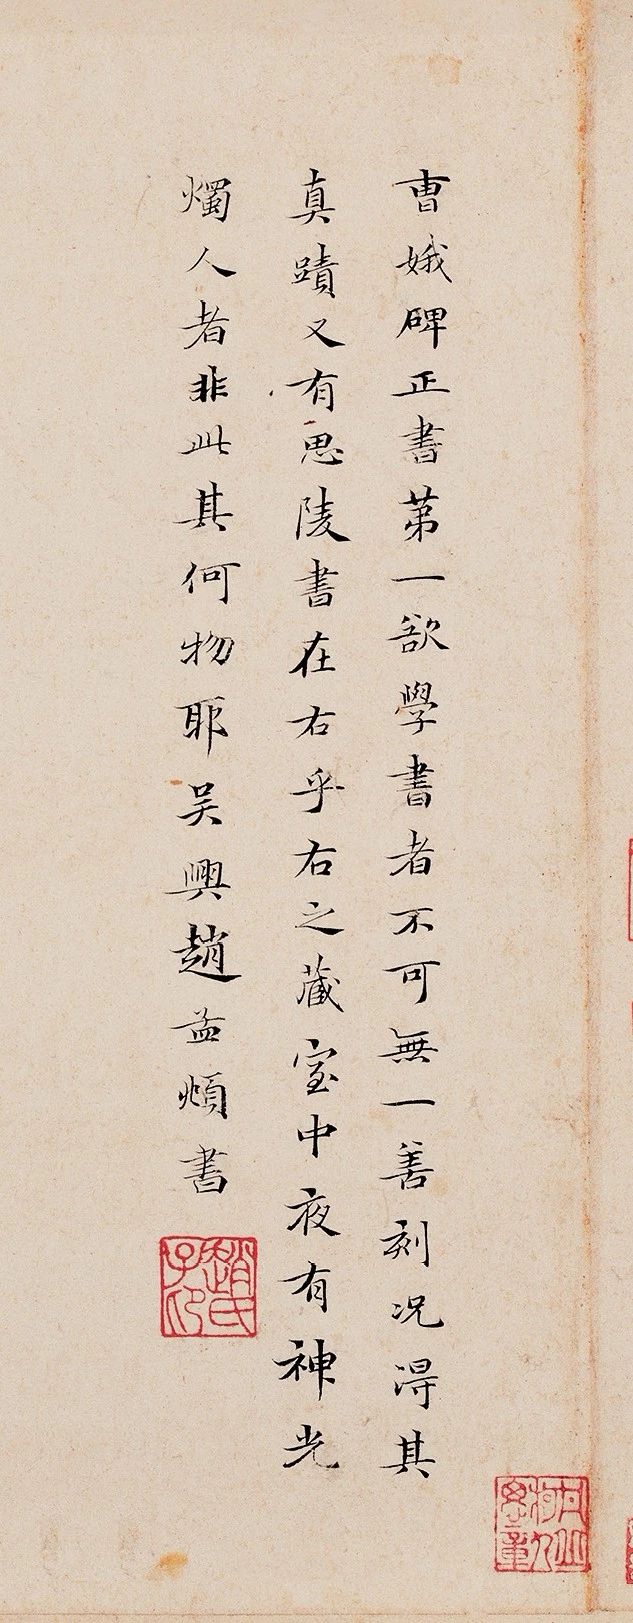 曺娥碑正書第一欲學書者不可無一善刻况淂其
真蹟又有思陵書在右乎右之藏室中夜有神光
燭人者非此其何物耶吴興趙孟頫書
趙氏子印